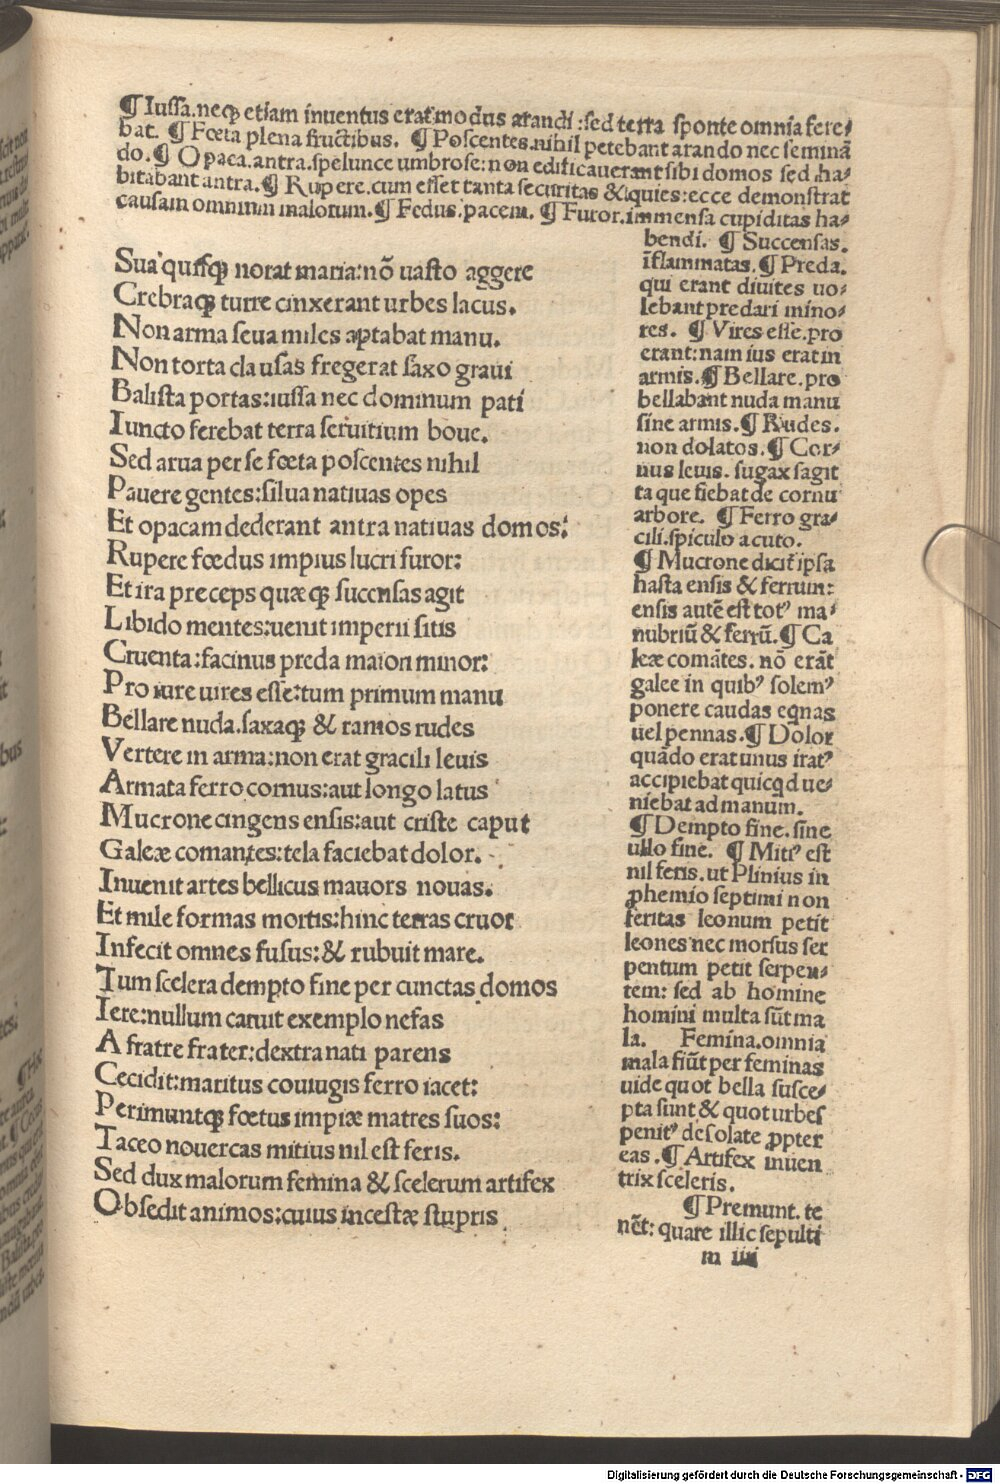 ¶ Iussa.neqꝫ etiam inuentus erat modus arandi:sed terra sponte omnia fere/
bat. ¶ Fœta plena fructibus. ¶ Poscentes.nihil petebant arando nec seminã
do.¶ Opaca.antra.spelunce umbrose:non edificauerant sibi domos sed ha/
bitabant antra.¶ Rupere.cum esset tanta securitas & iquies:ecce demonstrat
causam omnium malorum.¶ Fedus.pacem. ¶ Furor.immensa cupiditas ha/
Sua quisqꝫ norat maria:nõ uasto aggere
Crebraqꝫ turre cinxerant urbes lacus.
Non arma seua miles aptabat manu.
Non torta clausas fregerat saxo graui
Balista portas:iussa nec dominum pati
Iuncto ferebat terra seruitium boue.
Sed arua per se fœta poscentes nihil
Pauere gentes:silua natiuas opes
Et opacam dederant antra natiuas domos:
Rupere fœdus impius lucri furor:
Et ira preceps quæqꝫ succnsas agit
Libido mentes:uenit imperii sitis
Cruenta:facinus preda maiori minor:
Pro iure uires esse:tum primum manu
Bellare nuda.saxaqꝫ & ramos rudes
Vertere in arma:non erat gracili leuis
Armata ferro cornus:aut longo latus
Mucrone cingens ensis:aut criste caput
Galeæ comantes:tela faciebat dolor.
Inuenit artes bellicus mauors nouas.
Et mile formas mortis:hinc terras cruor
Infecit omnes fusus:& rubuit mare.
Tum scelera dempto fine per cunctas domos
Iere:nullum caruit exemplo nefas
A fratre frater:dextra nati parens
Cecidit:maritus coniugis ferro iacet:
Perimuntqꝫ fœtus impiæ matres suos:
Taceo nouercas mitius nil est feris.
Sed dux malorum femina & scelerum artifex
Obsedit animos:cuius incestæ stupris
bendi. ¶ Succensas.
ĩflammatas.¶ Preda.
qui erant diuites uo/
lebant predari mino/
res. ¶ Vires esse.pro
erant:nam ius erat in
armis.¶ Bellare.pro
bellabant nuda manu
sine armis.¶ Rudes.
non dolatos.¶ Cor/
nus leuis. sugax sagit
ta que fiebat de cornu
arbore. ¶ Ferro gra/
cili.spiculo acuto.
¶ Mucrone dicit ipsa
hasta ensis & ferrum:
ensis autẽ est totꝰ ma/
nubriũ & ferrũ.¶ Ca
leæ comãtes. nõ erãt
galee in quibꝰ solemꝰ
ponere caudas eqnas
uel pennas.¶ Dolor
quãdo erat unus iratꝰ
accipiebat quicqd ue/
niebat ad manum.
¶ Dempto fine. sine
ullo fine. ¶ Mitiꝰ est
nil feris.ut Plinius in
ꝓhemio septimi non
feritas leonum petit
leones nec morsus ser
pentum petit serpen/
tem: sed ab homine
homini multa sũt ma
la. Femina.omnia
mala fiũt per feminas
uide quot bella susce/
pta sunt & quot urbes
penitꝰ desolate ꝓpter
eas.¶ Artifex inuen
trix sceleris.
¶ Premunt. te
nẽt: quare illic sepulti
m iiii
Digitalisierung gefördert durch die Deutsche Forschungsgemeinschaft - DFG